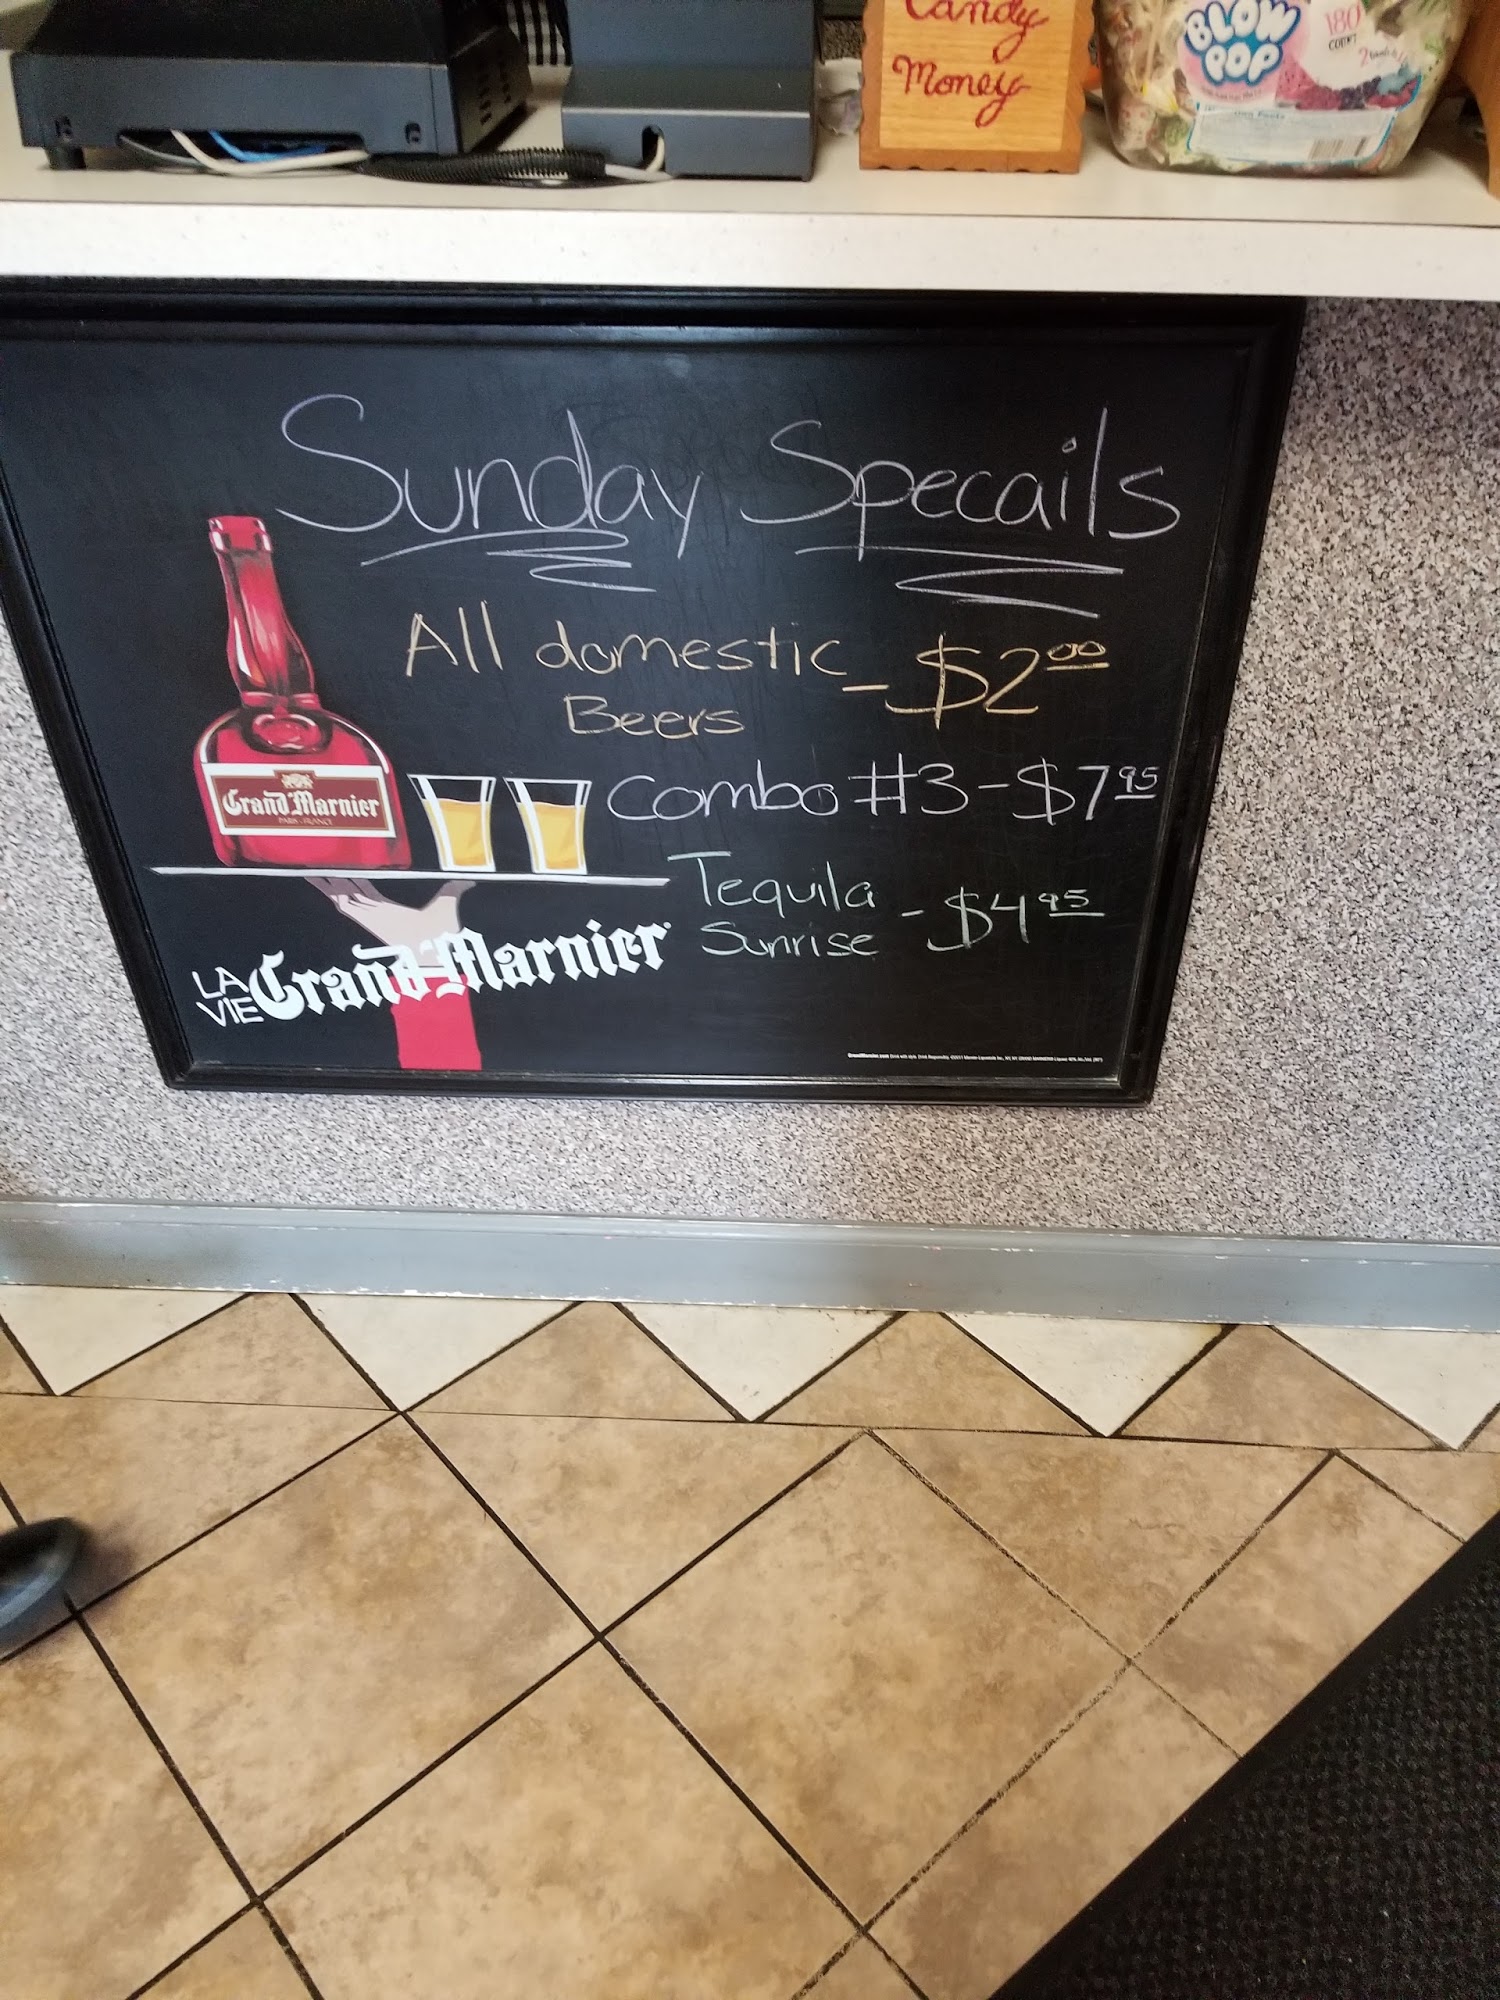 Candy
Money
BLOW
POP
180
COUNT
Sunday Specails
All domestic - $2.00
Beers
Combo #3 - $7.95
Tequila
Sunrise - $4.95
Grand Marnier
PARIS - FRANCE
LA
VIE Grand Marnier